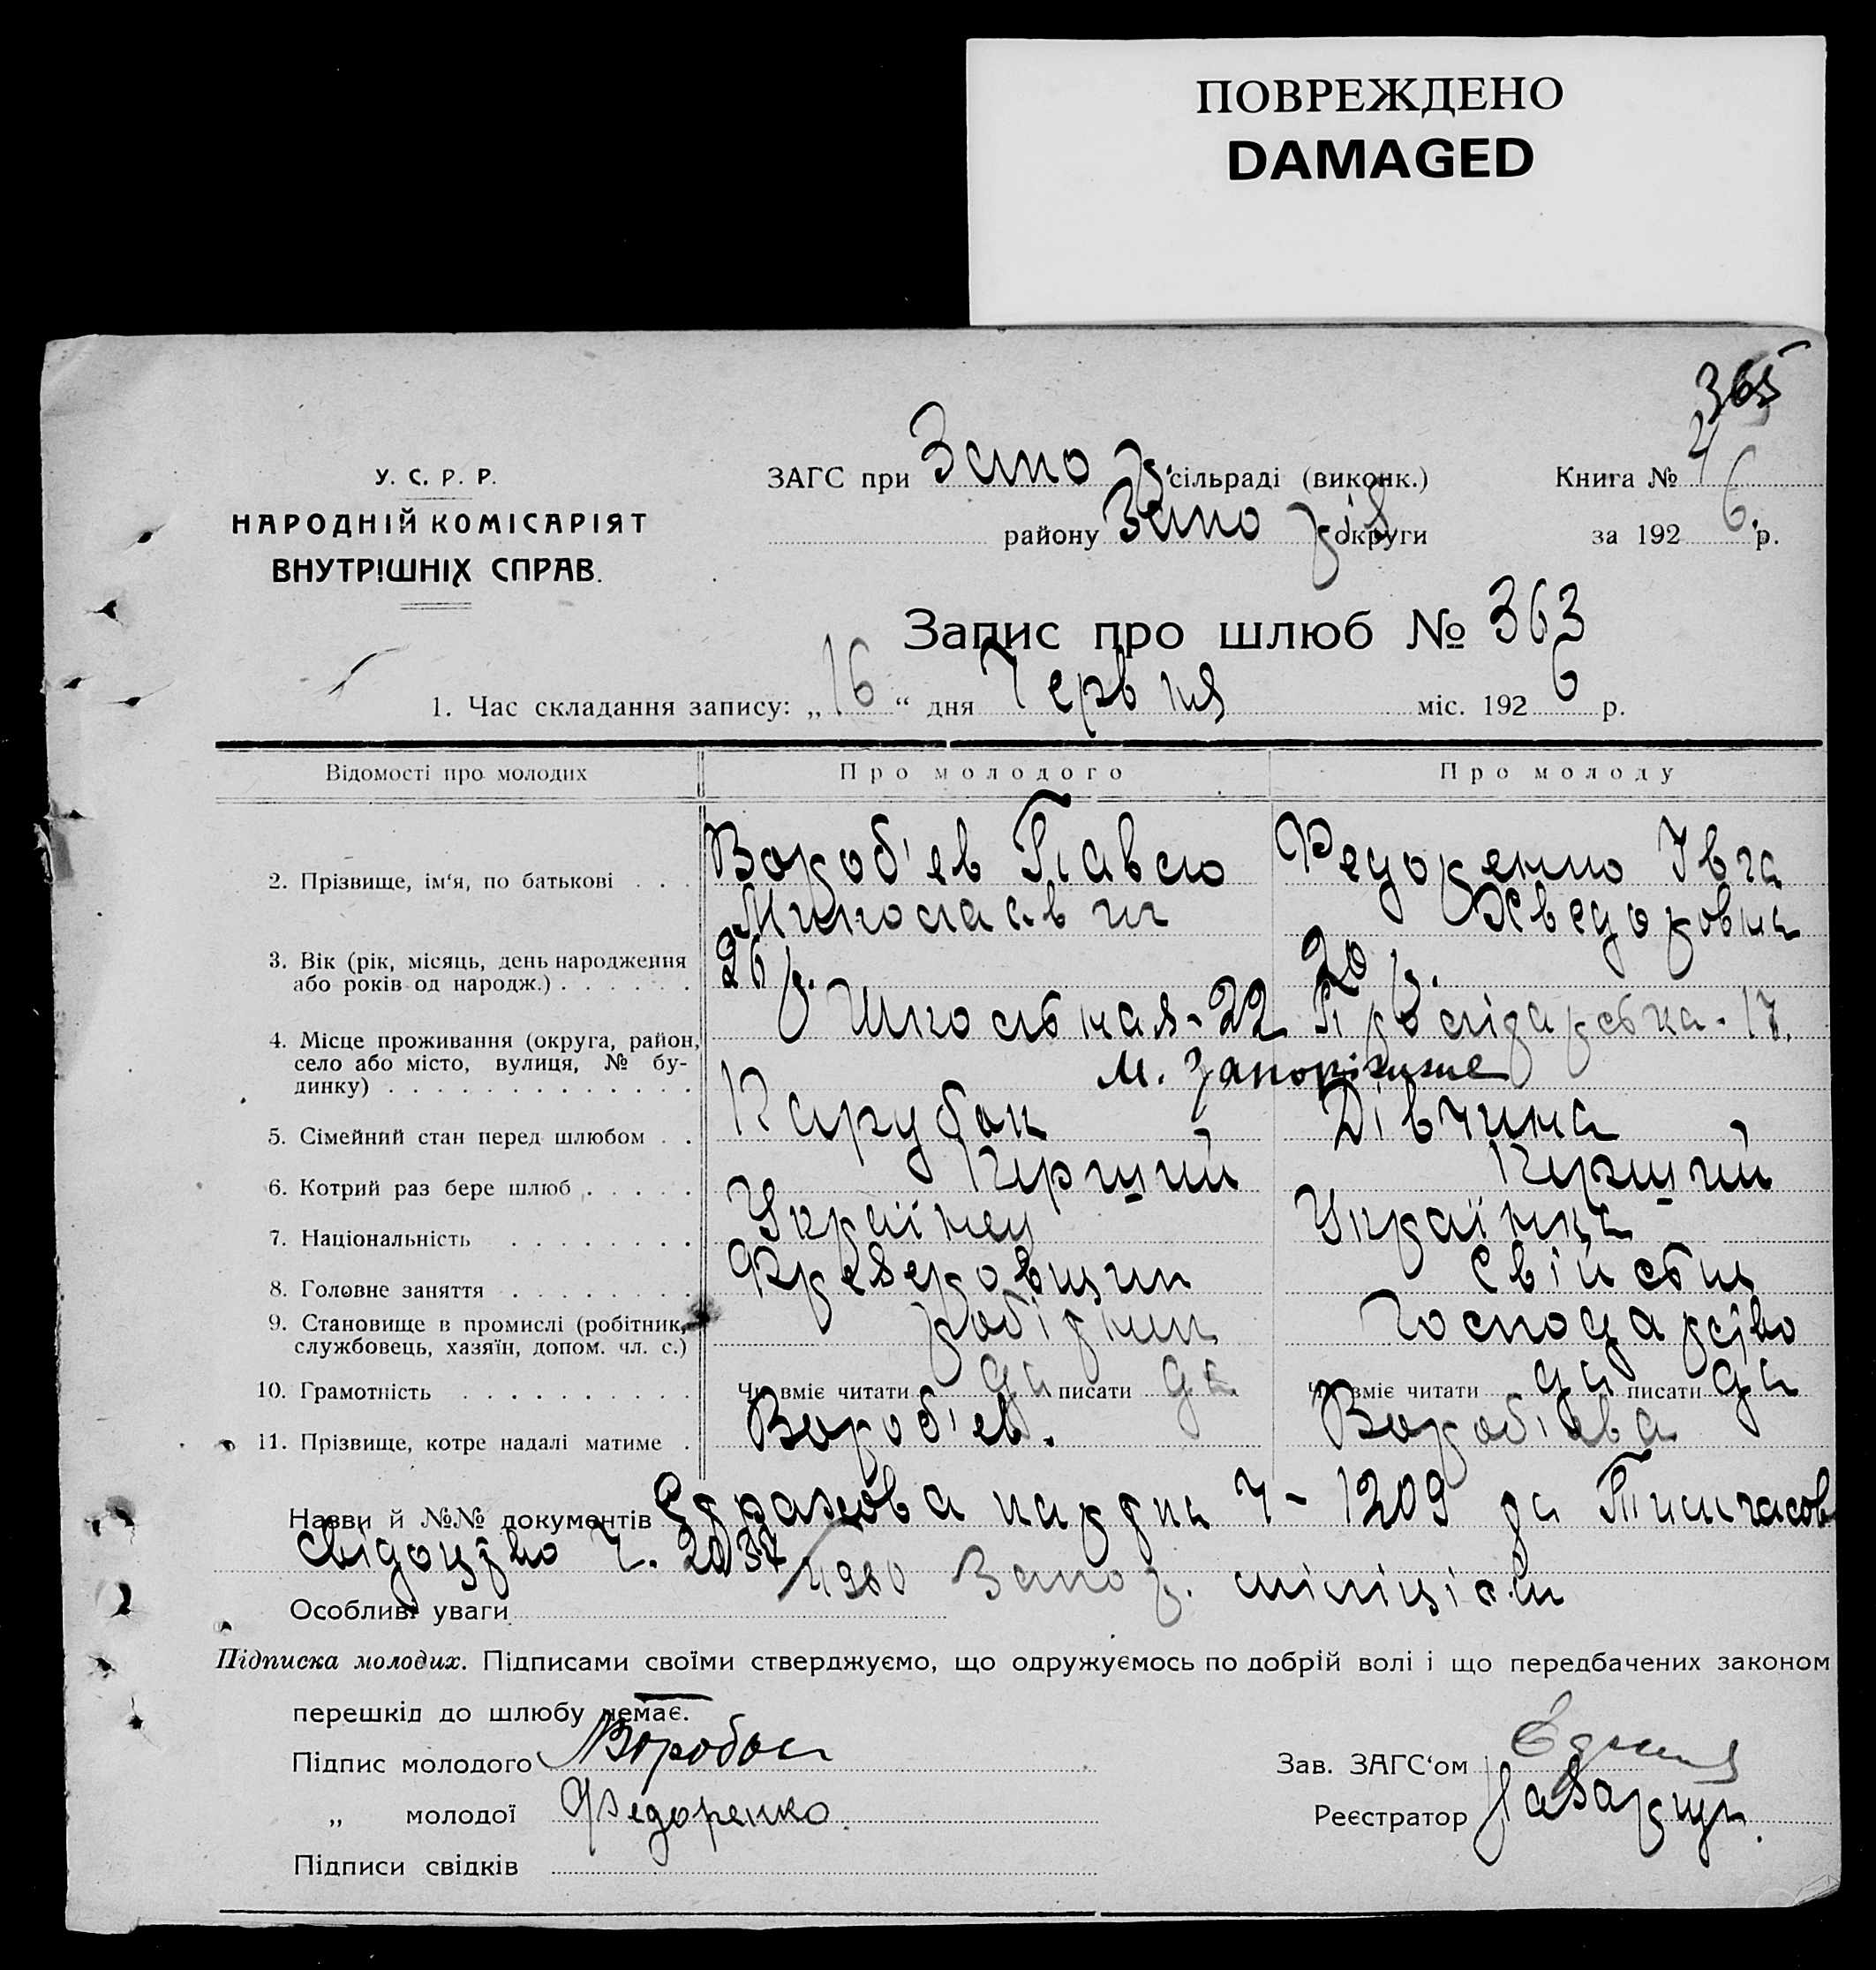 ПОВРЕЖДЕНО
DAMAGED
365
У. С. Р. Р.
НАРОДНІЙ КОМІСАРІЯТ
ВНУТРІШНІХ СПРАВ.
ЗАГС при Запо сільраді (виконк.) Книга № 4
району Запоріз округи за 192 6. р.
Запис про шлюб № 363
1. Час складання запису: „16“ дня Червня міс. 192 6 р.
Відомості про молодих Про молодого Про молоду
2. Прізвище, ім‘я, по батькові . . . Вороб'ев Павло Федоренко Івга
Миколаевич Хведоровна
3. Вік (рік, місяць, день народження або років од народж.) . . . . . . 26 р. 20 р.
4. Місце проживання (округа, район, село або місто, вулиця, № будинку) . . . Школьная - 22 - 17.
м. Запоріжже
5. Сімейний стан перед шлюбом . . Парубок Дівчина
6. Котрий раз бере шлюб . . . . . Перший Перший
7. Національність . . . . . . . . Українец Українка
8. Головне заняття . . . . . . . . Фрезеровщик Свійське
9. Становище в промислі (робітник, службовець, хазяїн, допом. чл. с.) робітник Господарство
10. Грамотність . . . . . . . . . . Чи вміє читати да писати да Чи вміє читати да писати да
11. Прізвище, котре надалі матиме . Вороб'ев. Вороб'ева
Назви й №№ документів Страхова картка Ч - 1209 та Тимчасов
свідоцтво Ч. 2037/4980 Запор. міліціеи
Особливі уваги
Підписка молодих. Підписами своїми стверджуємо, що одружуємось по добрій волі і що передбачених законом
перешкід до шлюбу немає.
Підпис молодого Зав. ЗАГС‘ом
„ молодої Федоренко. Реєстратор
Підписи свідків